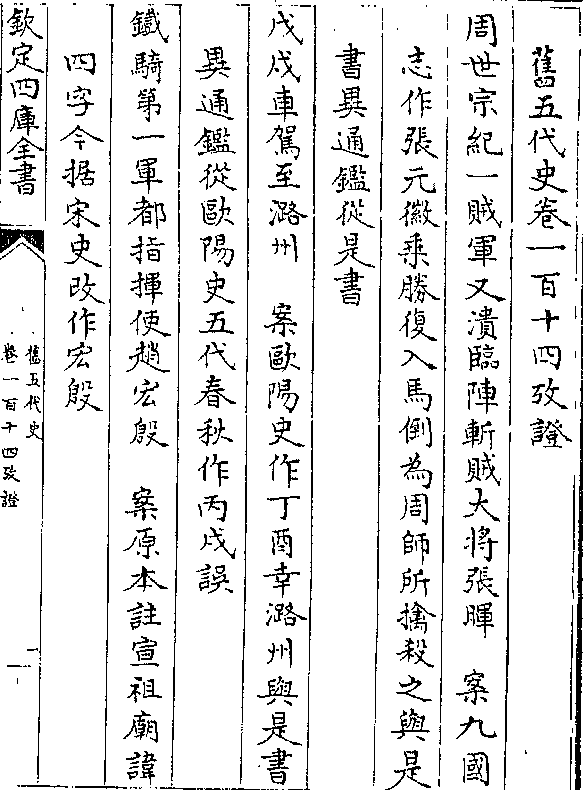 舊五代史卷一百十四攷證
周世宗紀一賊軍又潰臨陣斬賊大将張暉　案九國
志作張元徽乘勝復入馬倒為周師所擒殺之與是
書異通鑑從是書
戊戌車駕至潞州　案歐陽史作丁酉幸潞州與是書
異通鑑從歐陽史五代春秋作丙戌誤
鐵騎第一軍都指揮使趙宏殷　案原本註宣祖廟諱
四字今据宋史改作宏殷
欽定四庫全書
舊五代史
卷一百十四攷證
一